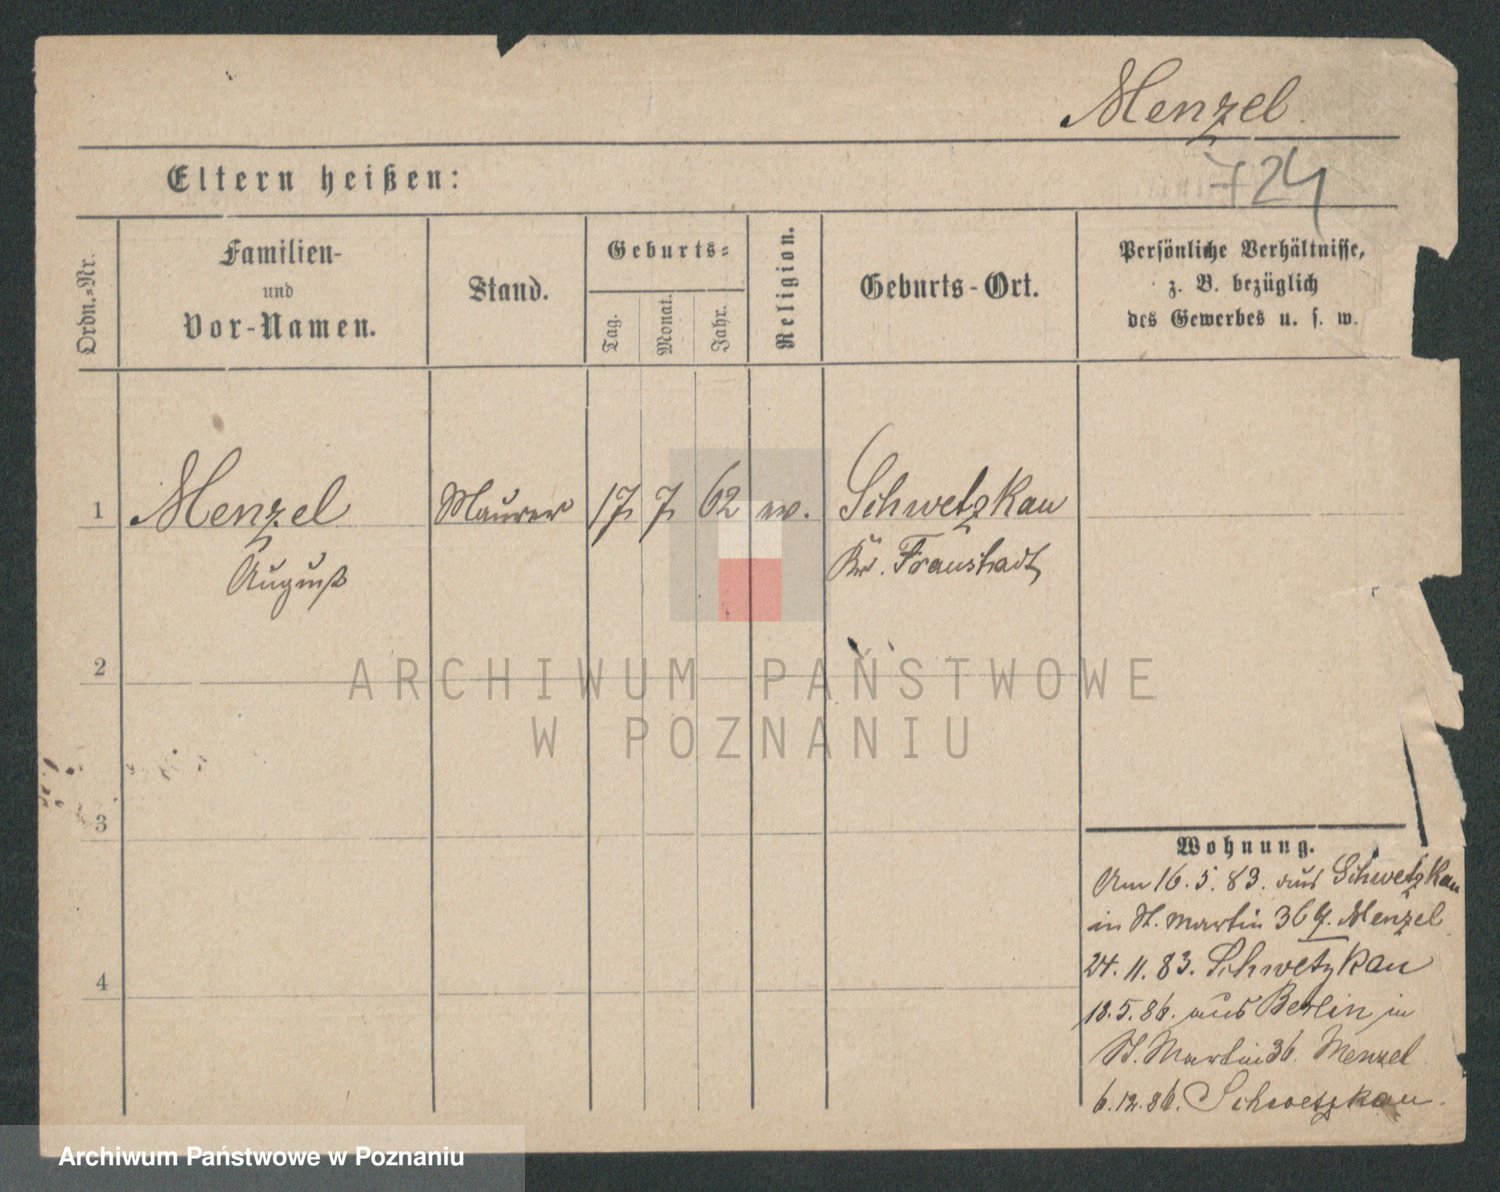 Menzel
724
Eltern heißen:
Ordn.-Nr.
Familien-
und
Vor-Namen.
Stand.
Geburts-
Tag.
Monat.
Jahr.
Religion.
Geburts-Ort.
Persönliche Verhältnisse,
z. B. bezüglich
des Gewerbes u. s. w.
1 Menzel Maurer 17 7 62 ev. Schwetzkau
August Kr. Fraustadt
2
ARCHIWUM PAŃSTWOWE
W POZNANIU
3
Wohnung.
Am 16.5.83. aus Schwetzkau
in St. Martin 36 Menzel
4
24.11.83. Schwetzkau
18.5.86. aus Berlin in
St. Martin 36. Menzel
6.12.86. Schwetzkau.
Archiwum Państwowe w Poznaniu